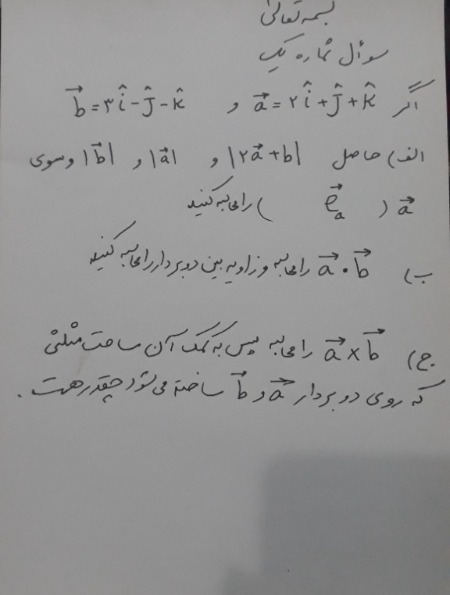 بسمه تعالی
سوال شماره یک
اگر a⃗ = ۲î + ĵ + k̂ و b⃗ = ۳î - ĵ - k̂
الف) حاصل |۲a⃗ + b| و |a⃗| و |b⃗| و سوی
a⃗ ( e⃗ₐ ) را محاسبه کنید
ب) a⃗ • b⃗ را محاسبه و زاویه بین دو بردار را محاسبه کنید
ج) a⃗ × b⃗ را محاسبه پس به کمک آن مساحت مثلثی
که روی دو بردار a⃗ و b⃗ ساخته می شود چقدر هست .